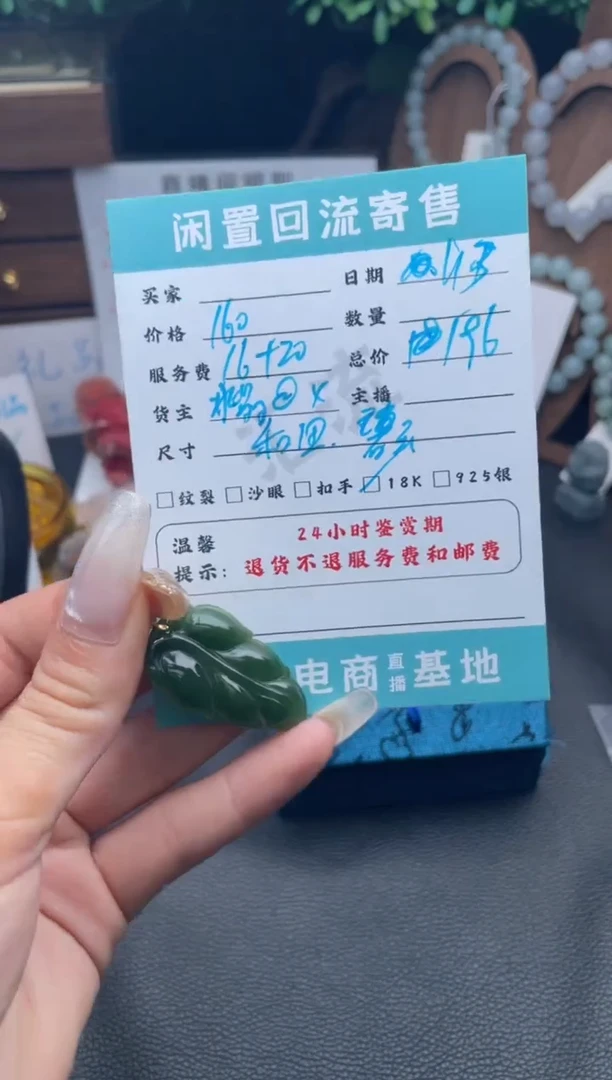 闲置回流寄售
买家 日期 1/13
价格 160 数量
服务费 16+20 总价 196
货主 主播
尺寸 和田.碧玉
□纹裂 □沙眼 □扣手 ☑18K □925银
温馨提示: 24小时鉴赏期
退货不退服务费和邮费
电商直播基地